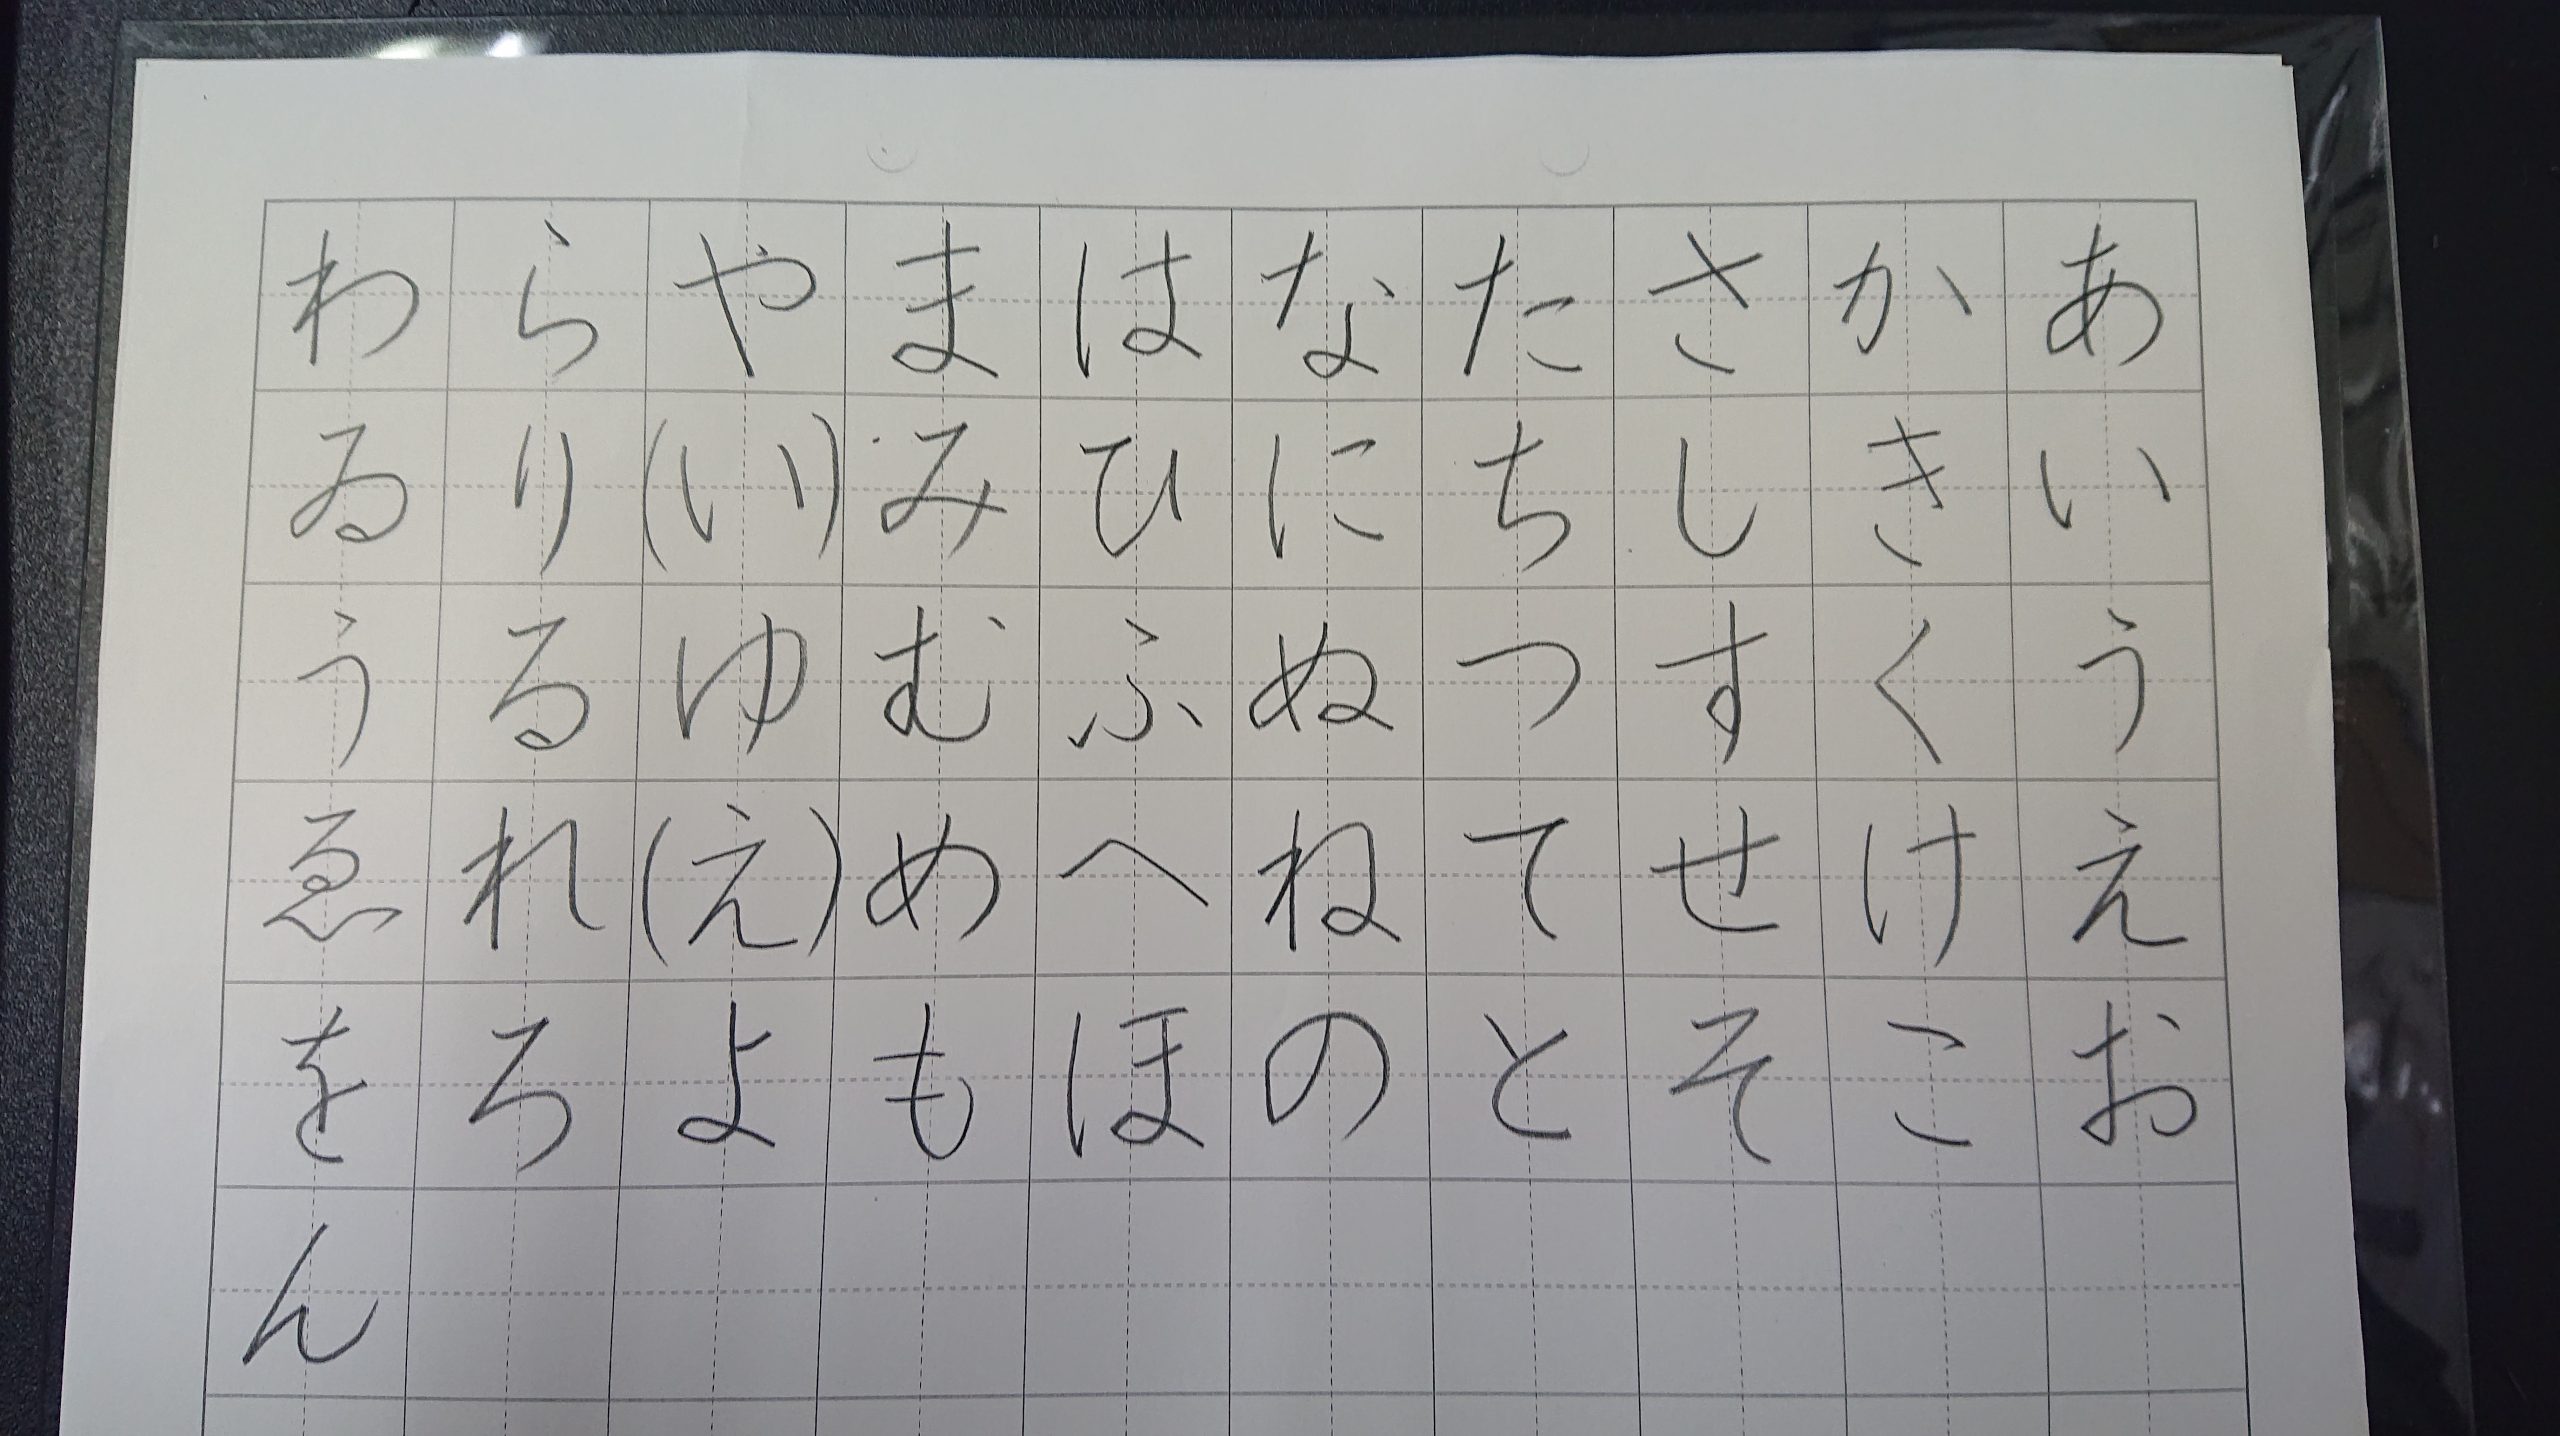 あいうえお
かきくけこ
さしすせそ
たちつてと
なにぬねの
はひふへほ
まみむめも
や(い)ゆ(え)よ
らりるれろ
わゐうゑをん